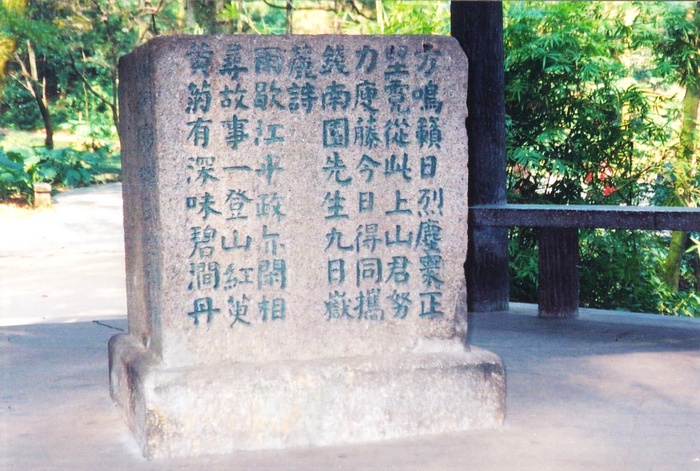 方鳴籟日烈塵正
從此上山君努
力藤今日得同攜
錢南園先生九日嶽
麓詩
雨歇江平政亦閑相
尋故事一登山紅萸
黃菊有深味碧澗丹